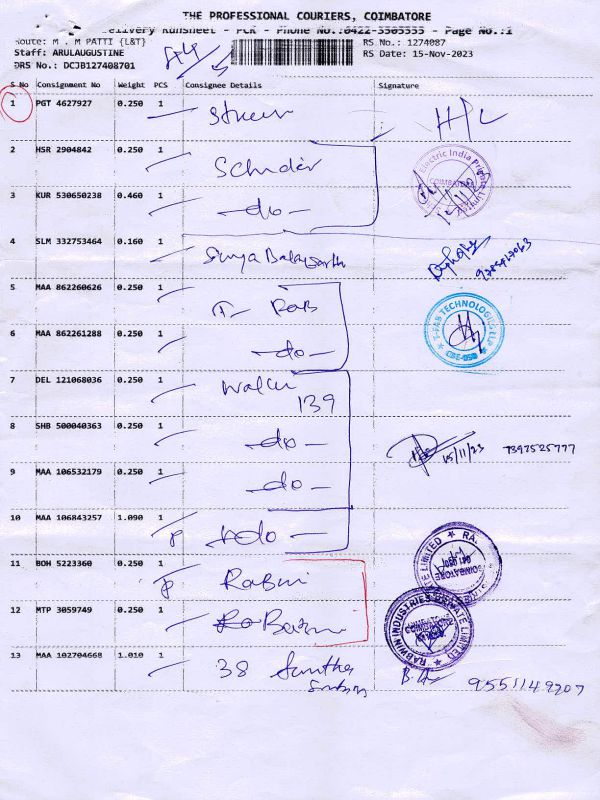 THE PROFESSIONAL COURIERS, COIMBATORE
Delivery Runsheet - PCR - Phone No.:0422-3505555 - Page No.:1
Route: M . M PATTI {L&T}
RS No.: 1274087
Staff: ARULAUGUSTINE
RS Date: 15-Nov-2023
DRS No.: DCJB127408701
S No Consignment No Weight PCS Consignee Details Signature
1 PGT 4627927 0.250 1 H/L
2 HSR 2904842 0.250 1
Electric India Private Limited
COIMBATORE
3 KUR 530650238 0.460 1 -do-
4 SLM 332753464 0.160 1
5 MAA 862260626 0.250 1
T-FAB TECHNOLOGIES LLP
6 MAA 862261288 0.250 1 -do-
7 DEL 121068036 0.250 1
139
8 SHB 500040363 0.250 1 -do-
15/11/23 7397525777
9 MAA 106532179 0.250 1 -do-
10 MAA 106843257 1.090 1 -do-
11 BOH 5223360 0.250 1
COIMBATORE
12 MTP 3059749 0.250 1
RABWIN INDUSTRIES PRIVATE LIMITED
13 MAA 102704668 1.010 1 38
9551149207